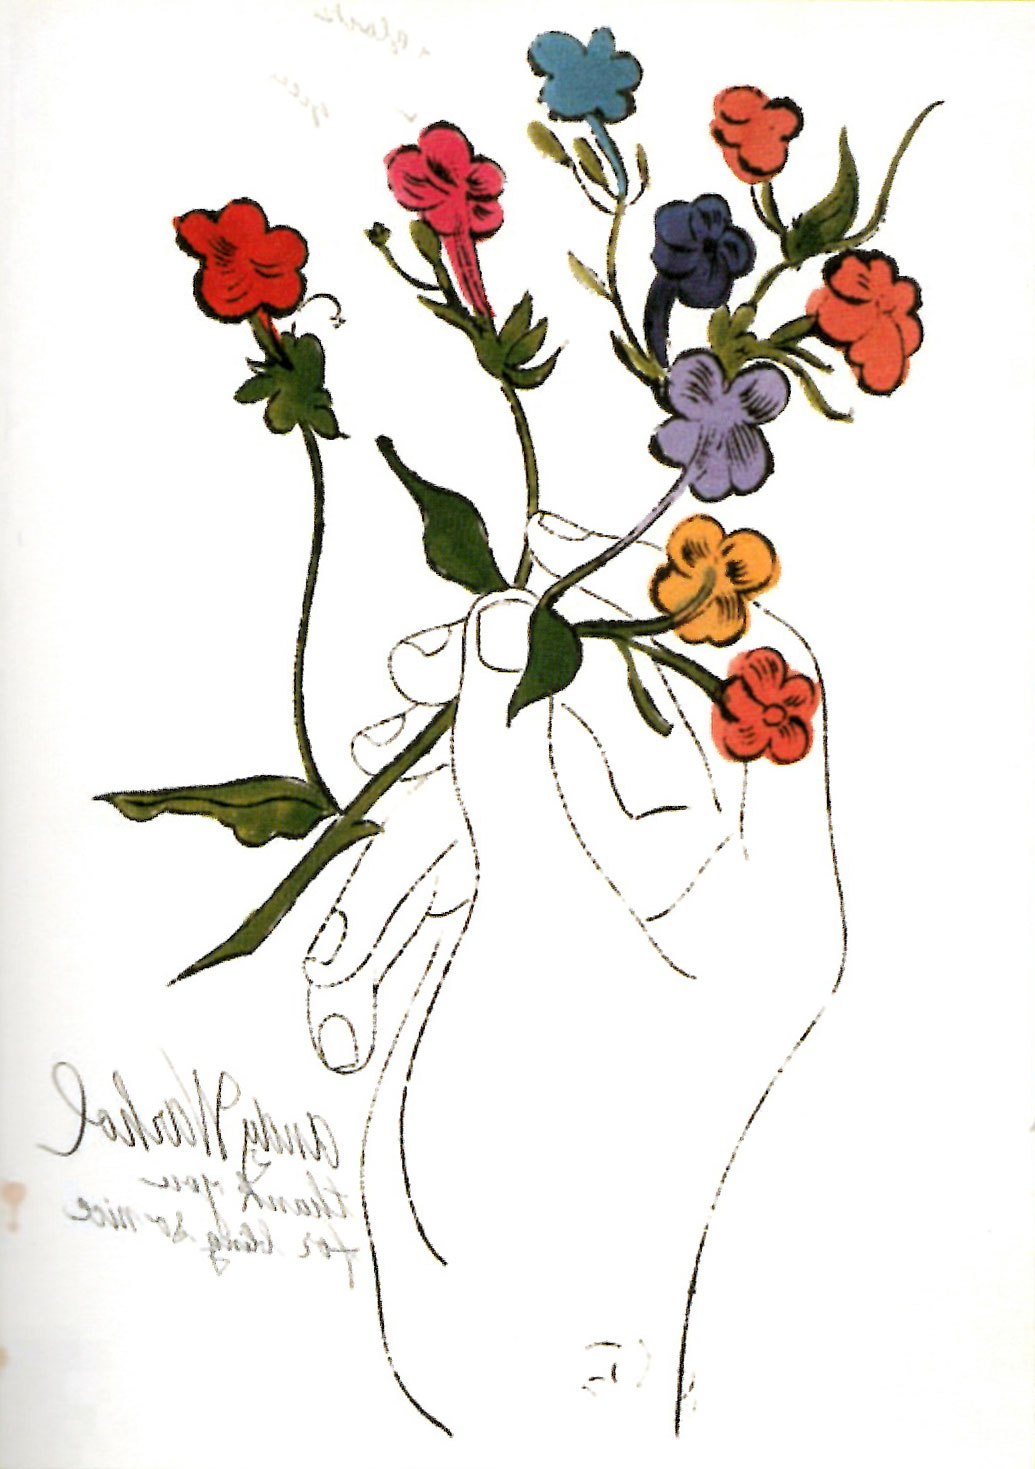 Andy Warhol
thank you
for bing so nice